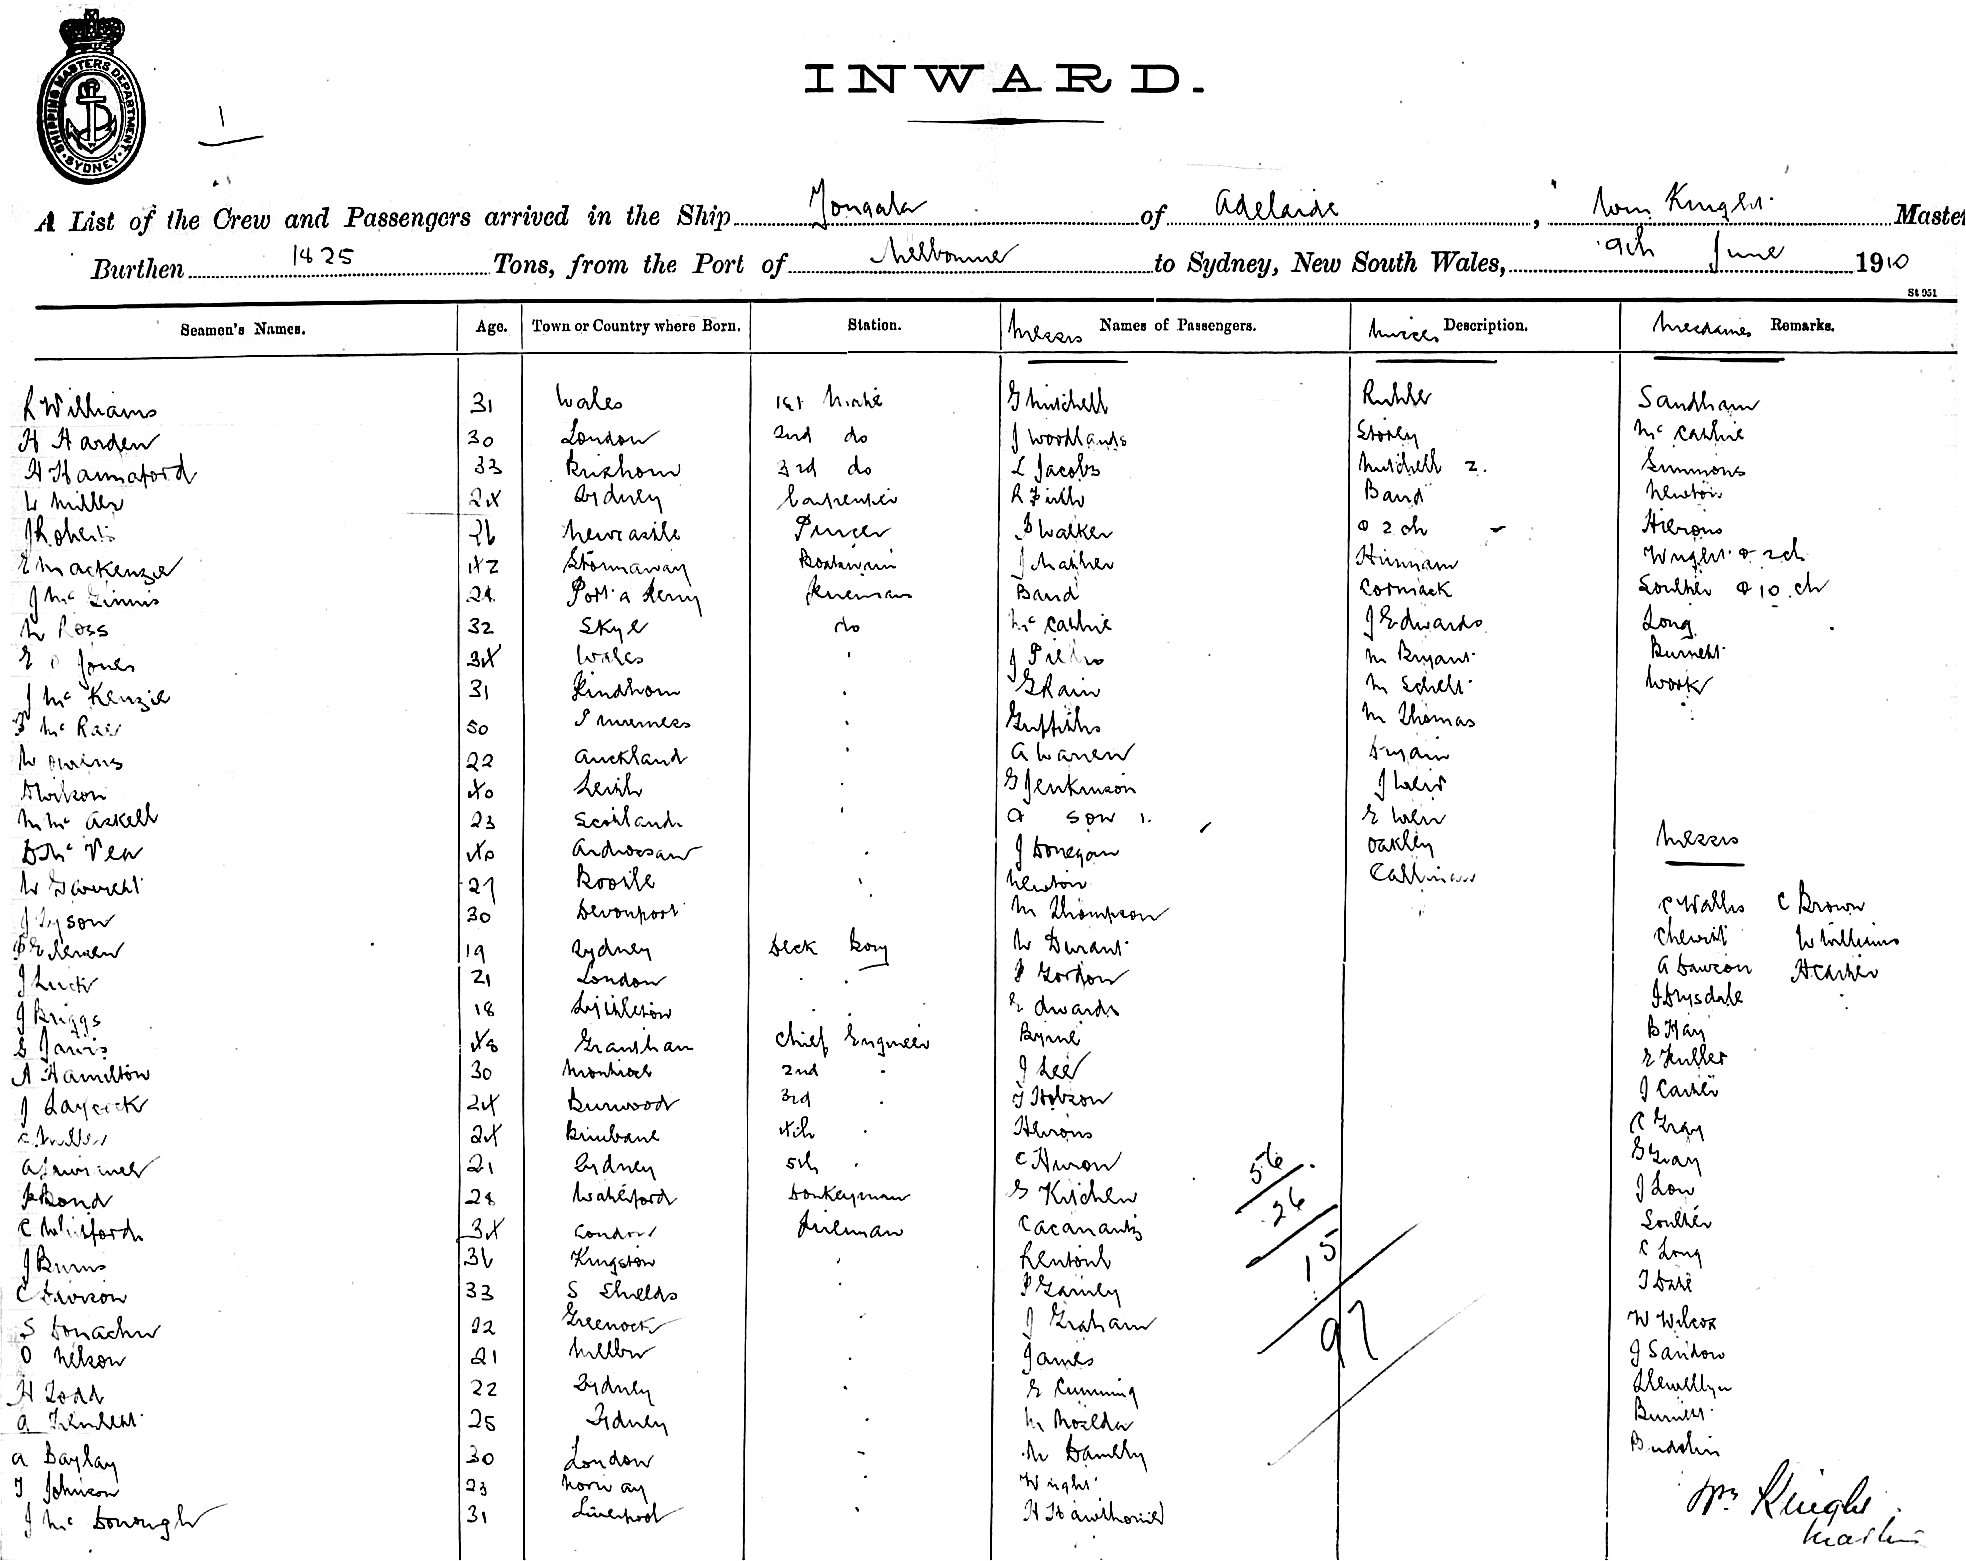 SHIPPING MASTERS DEPARTMENT · SYDNEY ·
1
INWARD.
A List of the Crew and Passengers arrived in the Ship Yongala of Adelaide, Wm Knight Master
Burthen 1825 Tons, from the Port of Melbourne to Sydney, New South Wales, 9th June 1910
St 951
Seamen's Names. Age. Town or Country where Born. Station. Messrs Names of Passengers. Misses Description. Mesdames Remarks.
R Williams 31 Wales 1st Mate G Mitchell Sandham
H Harden 30 London 2nd do J Woodlands Storey McCathie
H Hannaford 33 Brixham 3rd do L Jacobs Mitchell 2. Simmons
W Miller 24 Sydney Carpenter R Firth Band Newton
J Roberts 26 Newcastle Purser P Walker & 2 ch Hierons
E Mackenzie 42 Stornaway Boatswain J Mather Hinnam Wright & 2 ch
J McGinnis 24 Port a Ferry Fireman Band Cormack Soulter & 10 ch
M Ross 32 Skye do McCathie J Edwards Long
E O Jones 34 Wales J Pedro M Bryant Burnett
J McKenzie 31 Findhorn G Rain M Schelt Work
F McRae 50 Inverness Griffiths M Thomas
W Owens 22 Auckland A Warren Bryain
D Wilson 40 Leith G Jenkinson J Weir
M McAskell 23 Scotland & son 1. E Weir
D McVea 40 Ardrossan J Donegan Oakley Messrs
W Garrett 27 Bootle Newton Callinan
J Tyson 30 Devonport M Thompson C Wallis C Brown
P Edersen 19 Sydney Deck Boy W Durant Chewit W Williams
J Luck 21 London P Gordon A Dawson H Carter
J Briggs 18 Lyttleton Edwards J Drysdale
S Jarvis 48 Grantham Chief Engineer Byrne B Hay
A Hamilton 30 Montrose 2nd J Lee E Fuller
J Laycock 24 Burwood 3rd T Hobson J Carter
C Miller 24 Brisbane 4th Hierons C Gray
21 Sydney 5th C Huron G Gray
P Bond 28 Waterford Donkeyman G Kitchen J Low
C Whitford 34 London Fireman Cacanantis Soulter
J Burns 36 Kingston Rentoul C Long
C Davison 33 S Shields P Gamley T Date
S Donachie 22 Greenock J Graham W Wilcox
O Nelson 21 Melbn James J Sandow
H Todd 22 Sydney E Cumming Llewellyn
A 25 Sydney Burnett
A Baylay 30 London
T Johnson 23 Norway Wright
J McDonough 31 Liverpool H Hawthorne
56
26
15
97
Wm Knight
Master